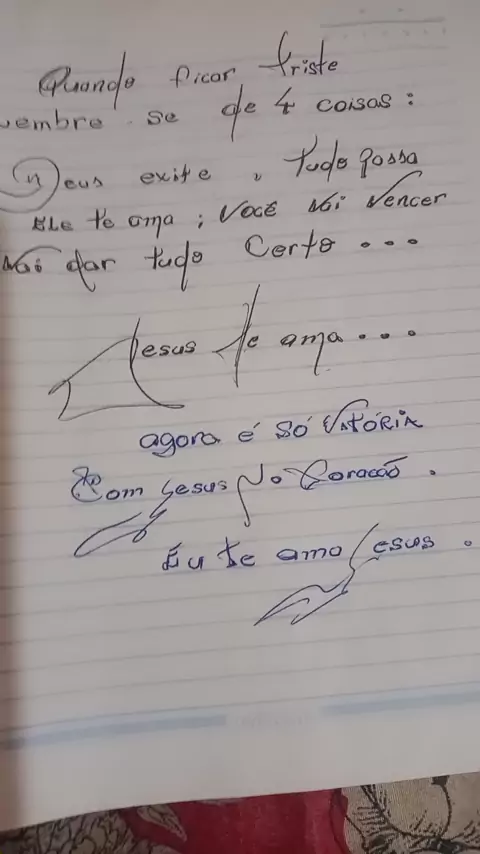 Quando ficar triste
lembre se de 4 coisas:
Deus exite, tudo passa
Ele te ama; Você vai vencer
vai dar tudo certo...
Jesus te ama...
agora é só vitória
Com Jesus no Coração.
Eu te amo Jesus.